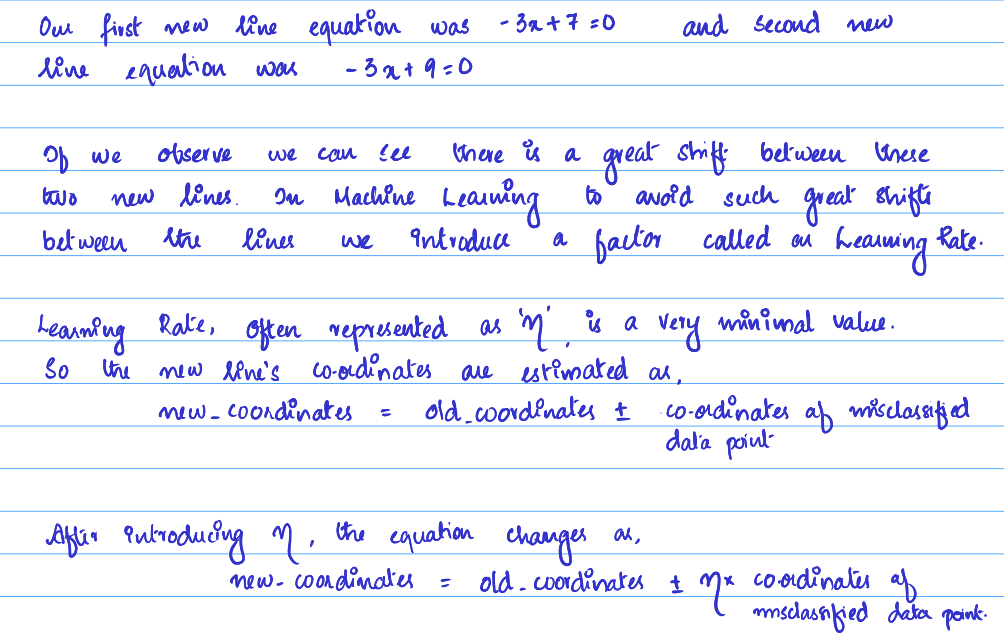 Our first new line equation was -3x+7=0 and second new
line equation was -3x+9=0
If we observe we can see there is a great shift between these
two new lines. In Machine Learning to avoid such great shifts
between the lines we introduce a factor called as Learning Rate.
Learning Rate, often represented as 'η', is a very minimal value.
So the new line's co-ordinates are estimated as,
new_coordinates = old_coordinates ± co-ordinates of misclassified
data point
After introducing η, the equation changes as,
new-coordinates = old-coordinates ± η× co-ordinates of
misclassified data point.